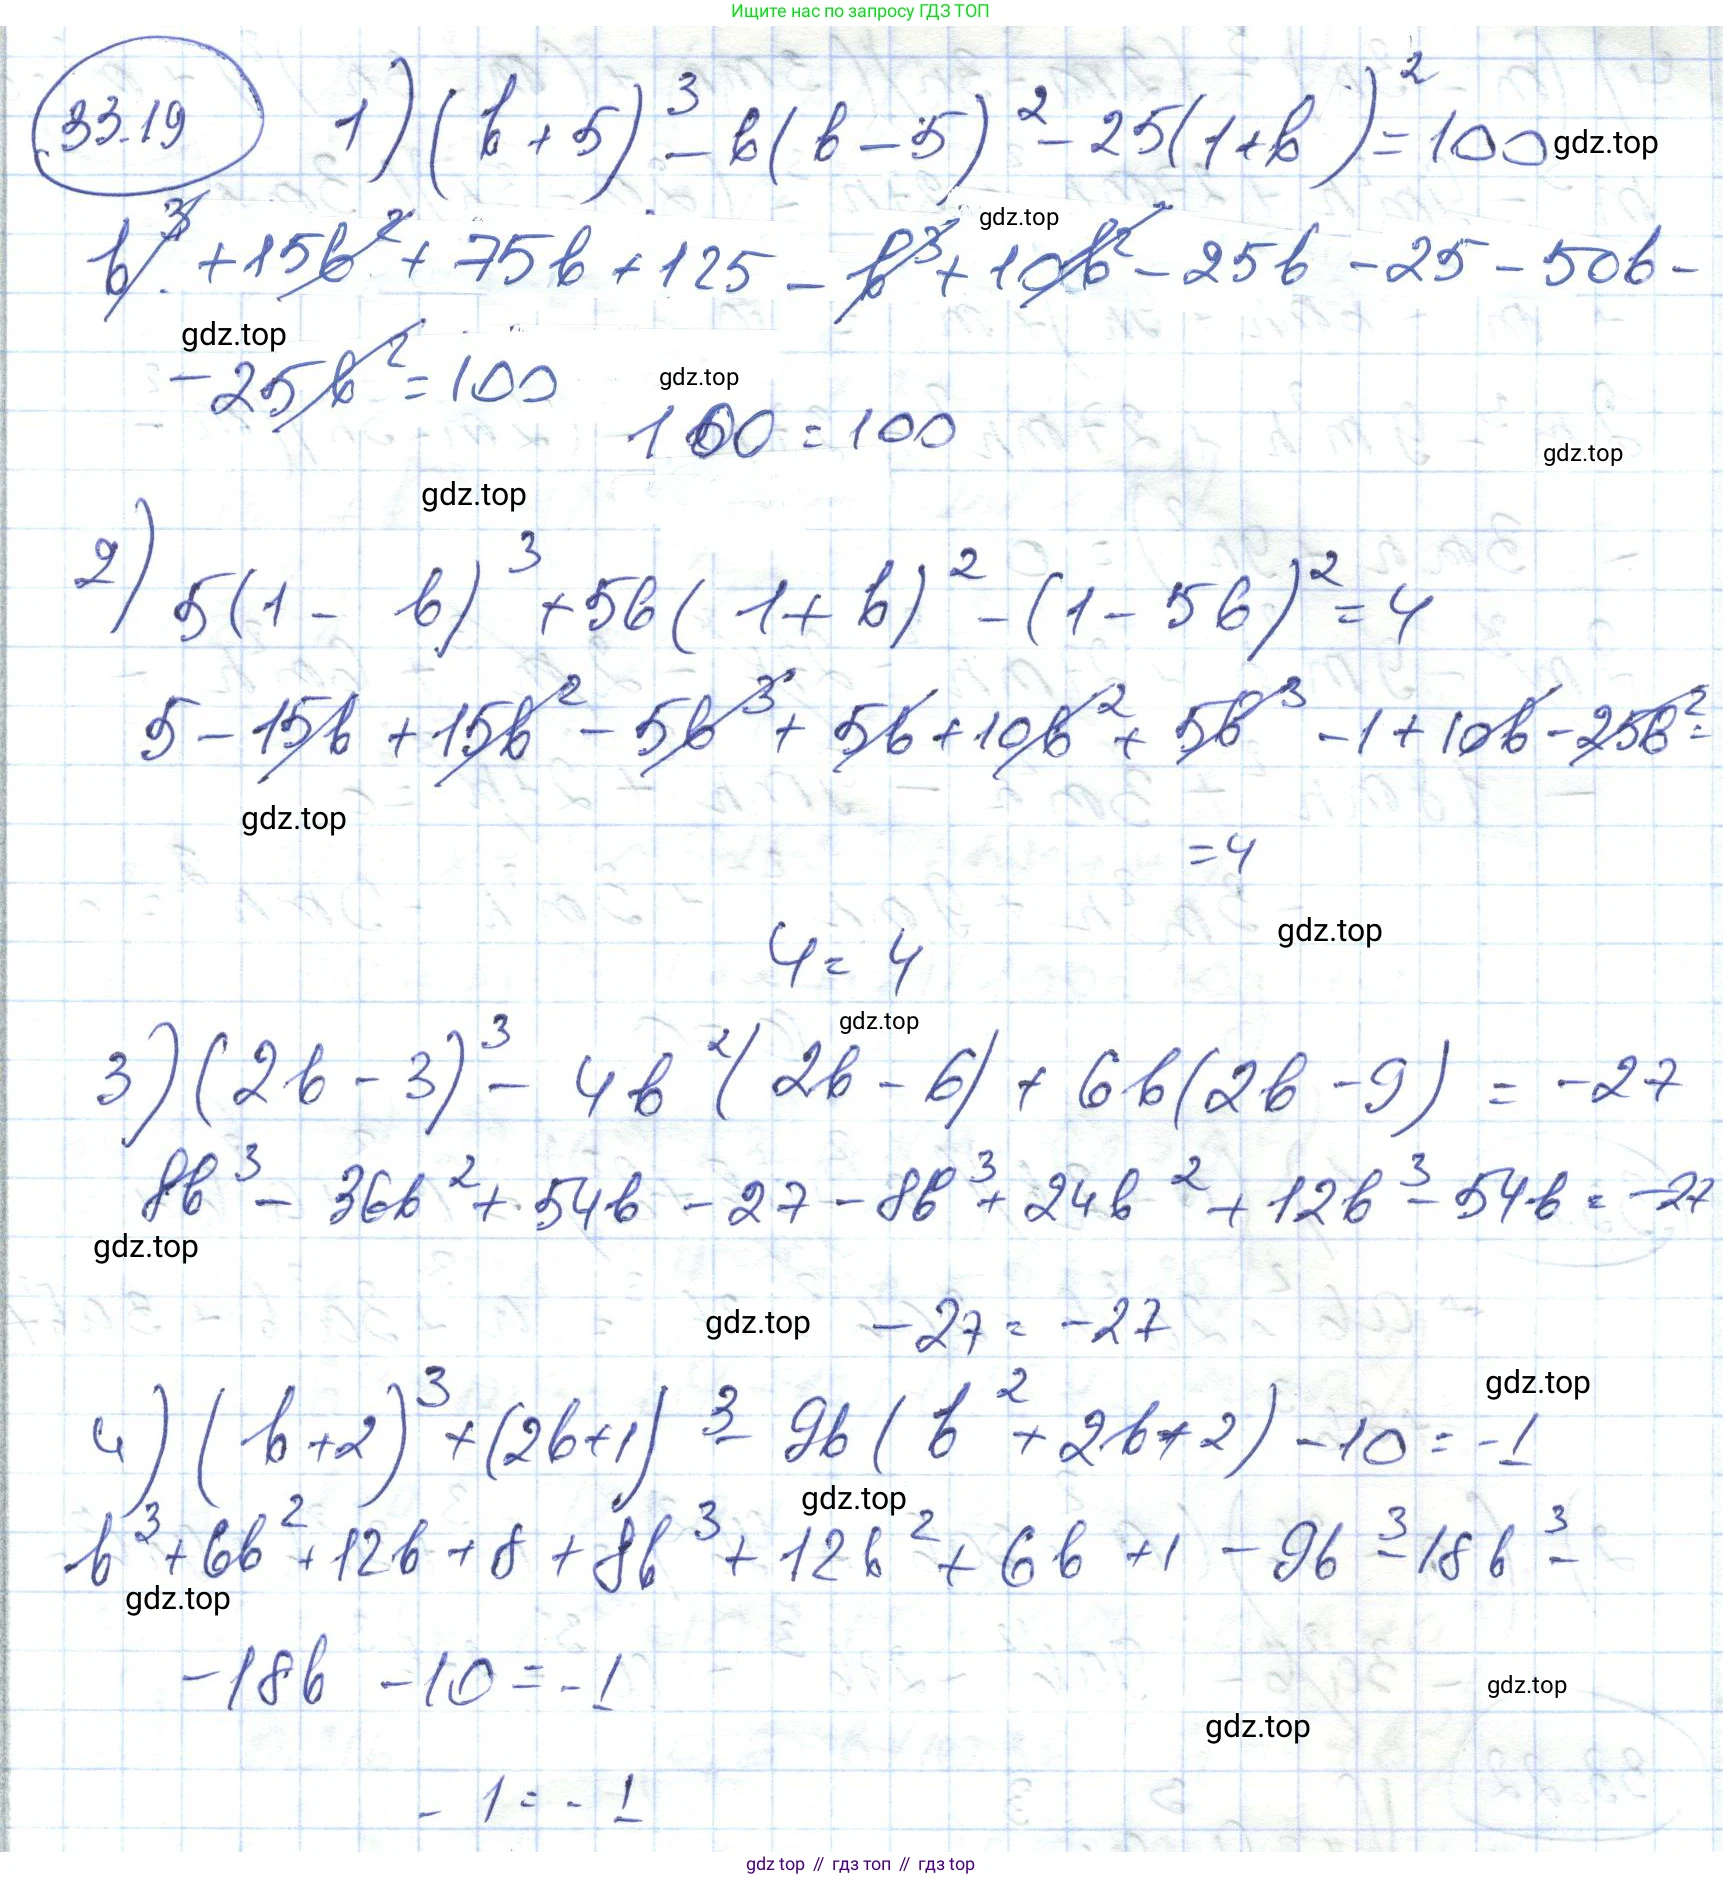 Ищите нас по запросу ГДЗ ТОП
33.19 1) (b+5)³ - b(b-5)² - 25(1+b)² = 100 gdz.top
gdz.top
b³ + 15b² + 75b + 125 - b³ + 10b² - 25b - 25 - 50b -
gdz.top
- 25b² = 100
gdz.top
100 = 100
gdz.top
gdz.top
2) 5(1 - b)³ + 5b(1 + b)² - (1 - 5b)² = 4
5 - 15b + 15b² - 5b³ + 5b + 10b² + 5b³ - 1 + 10b - 25b² =
gdz.top
= 4
gdz.top
4 = 4
gdz.top
3) (2b - 3)³ - 4b²(2b - 6) + 6b(2b - 9) = -27
8b³ - 36b² + 54b - 27 - 8b³ + 24b² + 12b³ - 54b = -27
gdz.top
gdz.top -27 = -27
gdz.top
4) (b+2)³ + (2b+1)³ - 9b(b² + 2b + 2) - 10 = -1
gdz.top
b³ + 6b² + 12b + 8 + 8b³ + 12b² + 6b + 1 - 9b³ - 18b³ -
gdz.top
- 18b - 10 = -1
gdz.top
gdz.top
- 1 = - 1
gdz top // гдз топ // гдз top